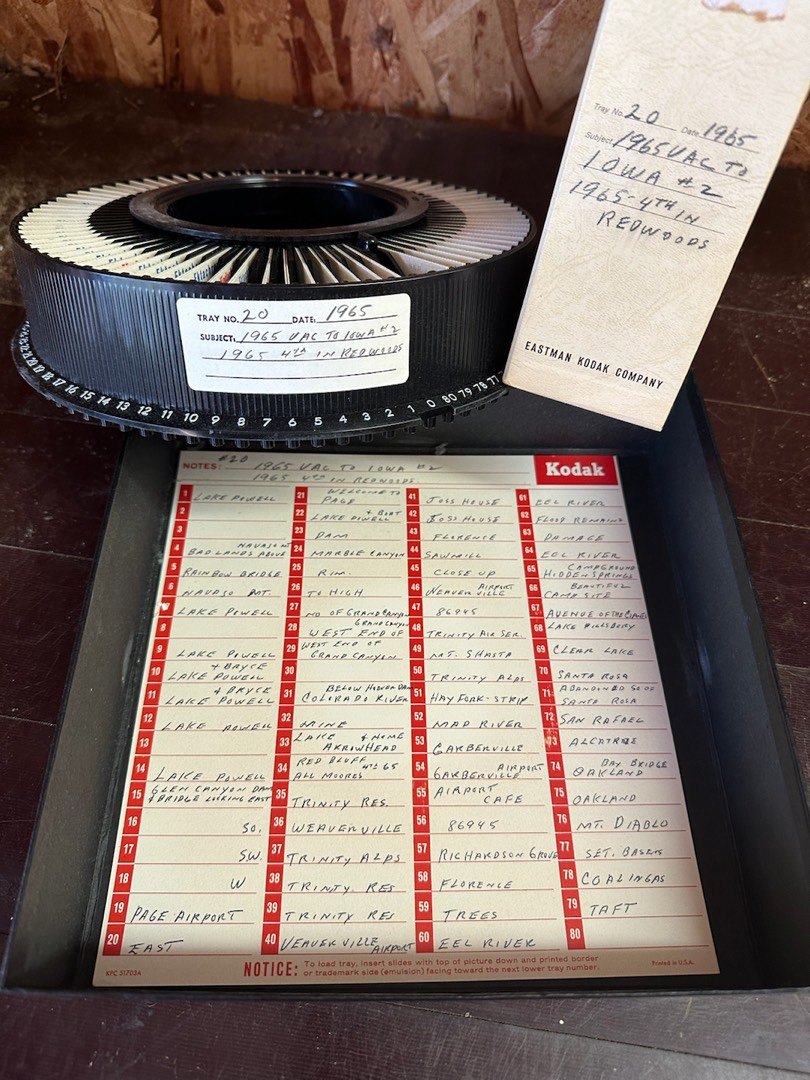 Tray No. 20 Date 1965
Subject 1965 VAC TO
IOWA #2
1965-4TH IN
REDWOODS
EASTMAN KODAK COMPANY
TRAY NO. 20 DATE: 1965
SUBJECT: 1965 VAC TO IOWA #2
1965 4TH IN REDWOODS
17 16 15 14 13 12 11 10 9 8 7 6 5 4 3 2 1 0 80 79 78 77
#20
NOTES: 1965 VAC TO IOWA #2
1965 4TH IN REDWOODS
Kodak
1 LAKE POWELL
2
3
4 NAVAJO MT
BAD LANDS ABOVE
5 RAINBOW BRIDGE
6 NAVAJO MT.
LAKE POWELL
8
9 LAKE POWELL
10 + BRYCE
LAKE POWELL
11 & BRYCE
LAKE POWELL
12 LAKE POWELL
13
14 LAKE POWELL
15 GLEN CANYON DAM
& BRIDGE LOOKING EAST
16 SO.
17 SW.
18 W
19 PAGE AIRPORT
20 EAST
21 WELCOME TO
PAGE
22 & BOAT
LAKE POWELL
23 DAM
24 MARBLE CANYON
25 RIM
26 TO HIGH
27 NO OF GRAND CANYON
28 GRAND CANYON
WEST END OF
29 WEST END OF
GRAND CANYON
30
31 BELOW HOOVER DAM
COLORADO RIVER
32 MINE
33 LAKE & HOME
ARROWHEAD
34 RED BLUFF 4TH 65
ALL MOORES
35 TRINITY RES.
36 WEAVERVILLE
37 TRINITY ALPS
38 TRINITY RES
39 TRINITY RES
40 WEAVERVILLE AIRPORT
41 JOSS HOUSE
42 JOSS HOUSE
43 FLORENCE
44 SAWMILL
45 CLOSE UP
46 AIRPORT
WEAVERVILLE
47 86945
48 TRINITY AIR SER.
49 MT. SHASTA
50 TRINITY ALPS
51 HAYFORK-STRIP
52 MAD RIVER
53 GARBERVILLE
54 AIRPORT
GARBERVILLE
55 AIRPORT
CAFE
56 86945
57 RICHARDSON GROVE
58 FLORENCE
59 TREES
60 EEL RIVER
61 EEL RIVER
62 FLOOD REMAINS
63 DAMAGE
64 EEL RIVER
65 CAMPGROUND
HIDDEN SPRINGS
66 BEAUTIFUL
CAMP SITE
67 AVENUE OF THE GIANTS
68 LAKE PILLSBURY
69 CLEAR LAKE
70 SANTA ROSA
71 ABANDONED SO OF
SANTA ROSA
72 SAN RAFAEL
73 ALCATRAZ
74 BAY BRIDGE
OAKLAND
75 OAKLAND
76 MT. DIABLO
77
78 COALINGAS
79 TAFT
80
NOTICE: To load tray, insert slides with top of picture down and printed border
or trademark side (emulsion) facing toward the next lower tray number.
KPC 51703A
Printed in U.S.A.